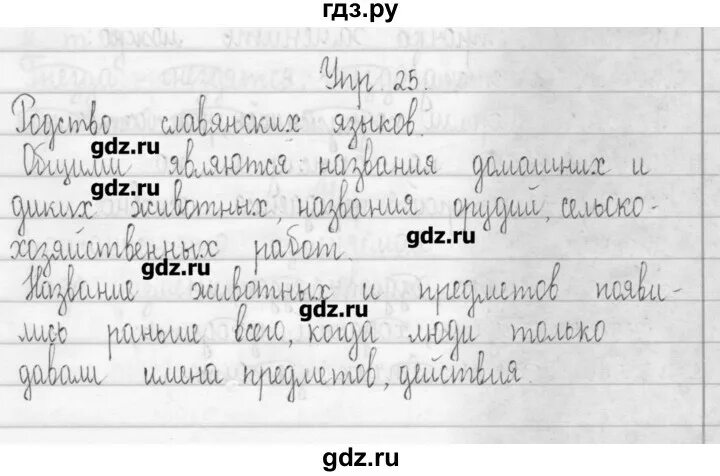 гдз.ру
Упр. 25.
Родство славянских языков.
gdz.ru
Общими являются названия домашних и
gdz.ru
диких животных, названия орудий, сельско-
gdz.ru
хозяйственных работ.
gdz.ru
Название животных и предметов появи-
gdz.ru
лись раньше всего, когда люди только
давали имена предметов, действия.
gdz.ru